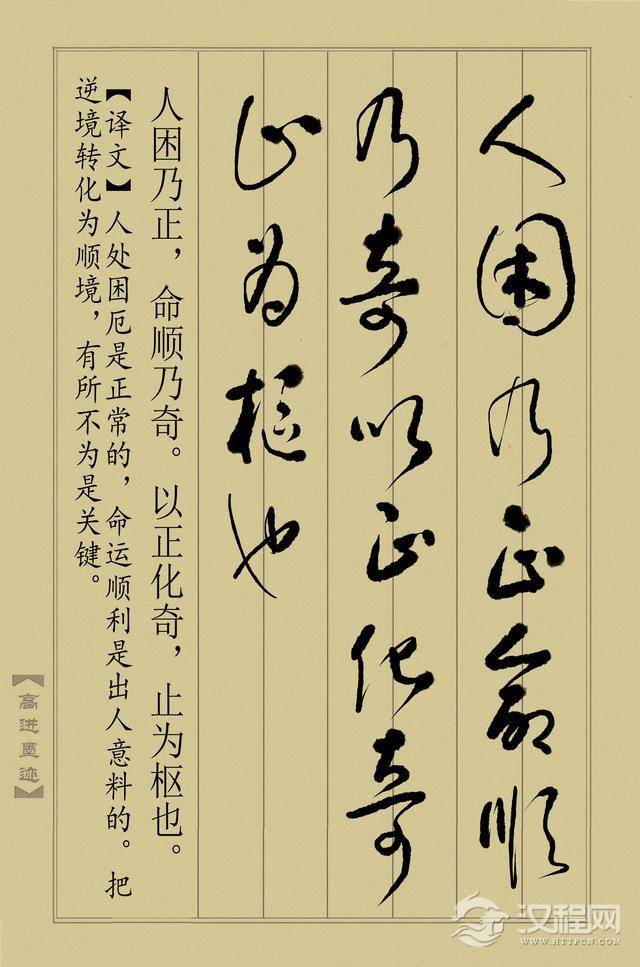 人困乃正命顺
乃奇以正化奇
止为枢也
人困乃正，命顺乃奇。以正化奇，止为枢也。
【译文】人处困厄是正常的，命运顺利是出人意料的。把
逆境转化为顺境，有所不为是关键。
【高进墨迹】
汉程网
WWW.HTTPCN.COM